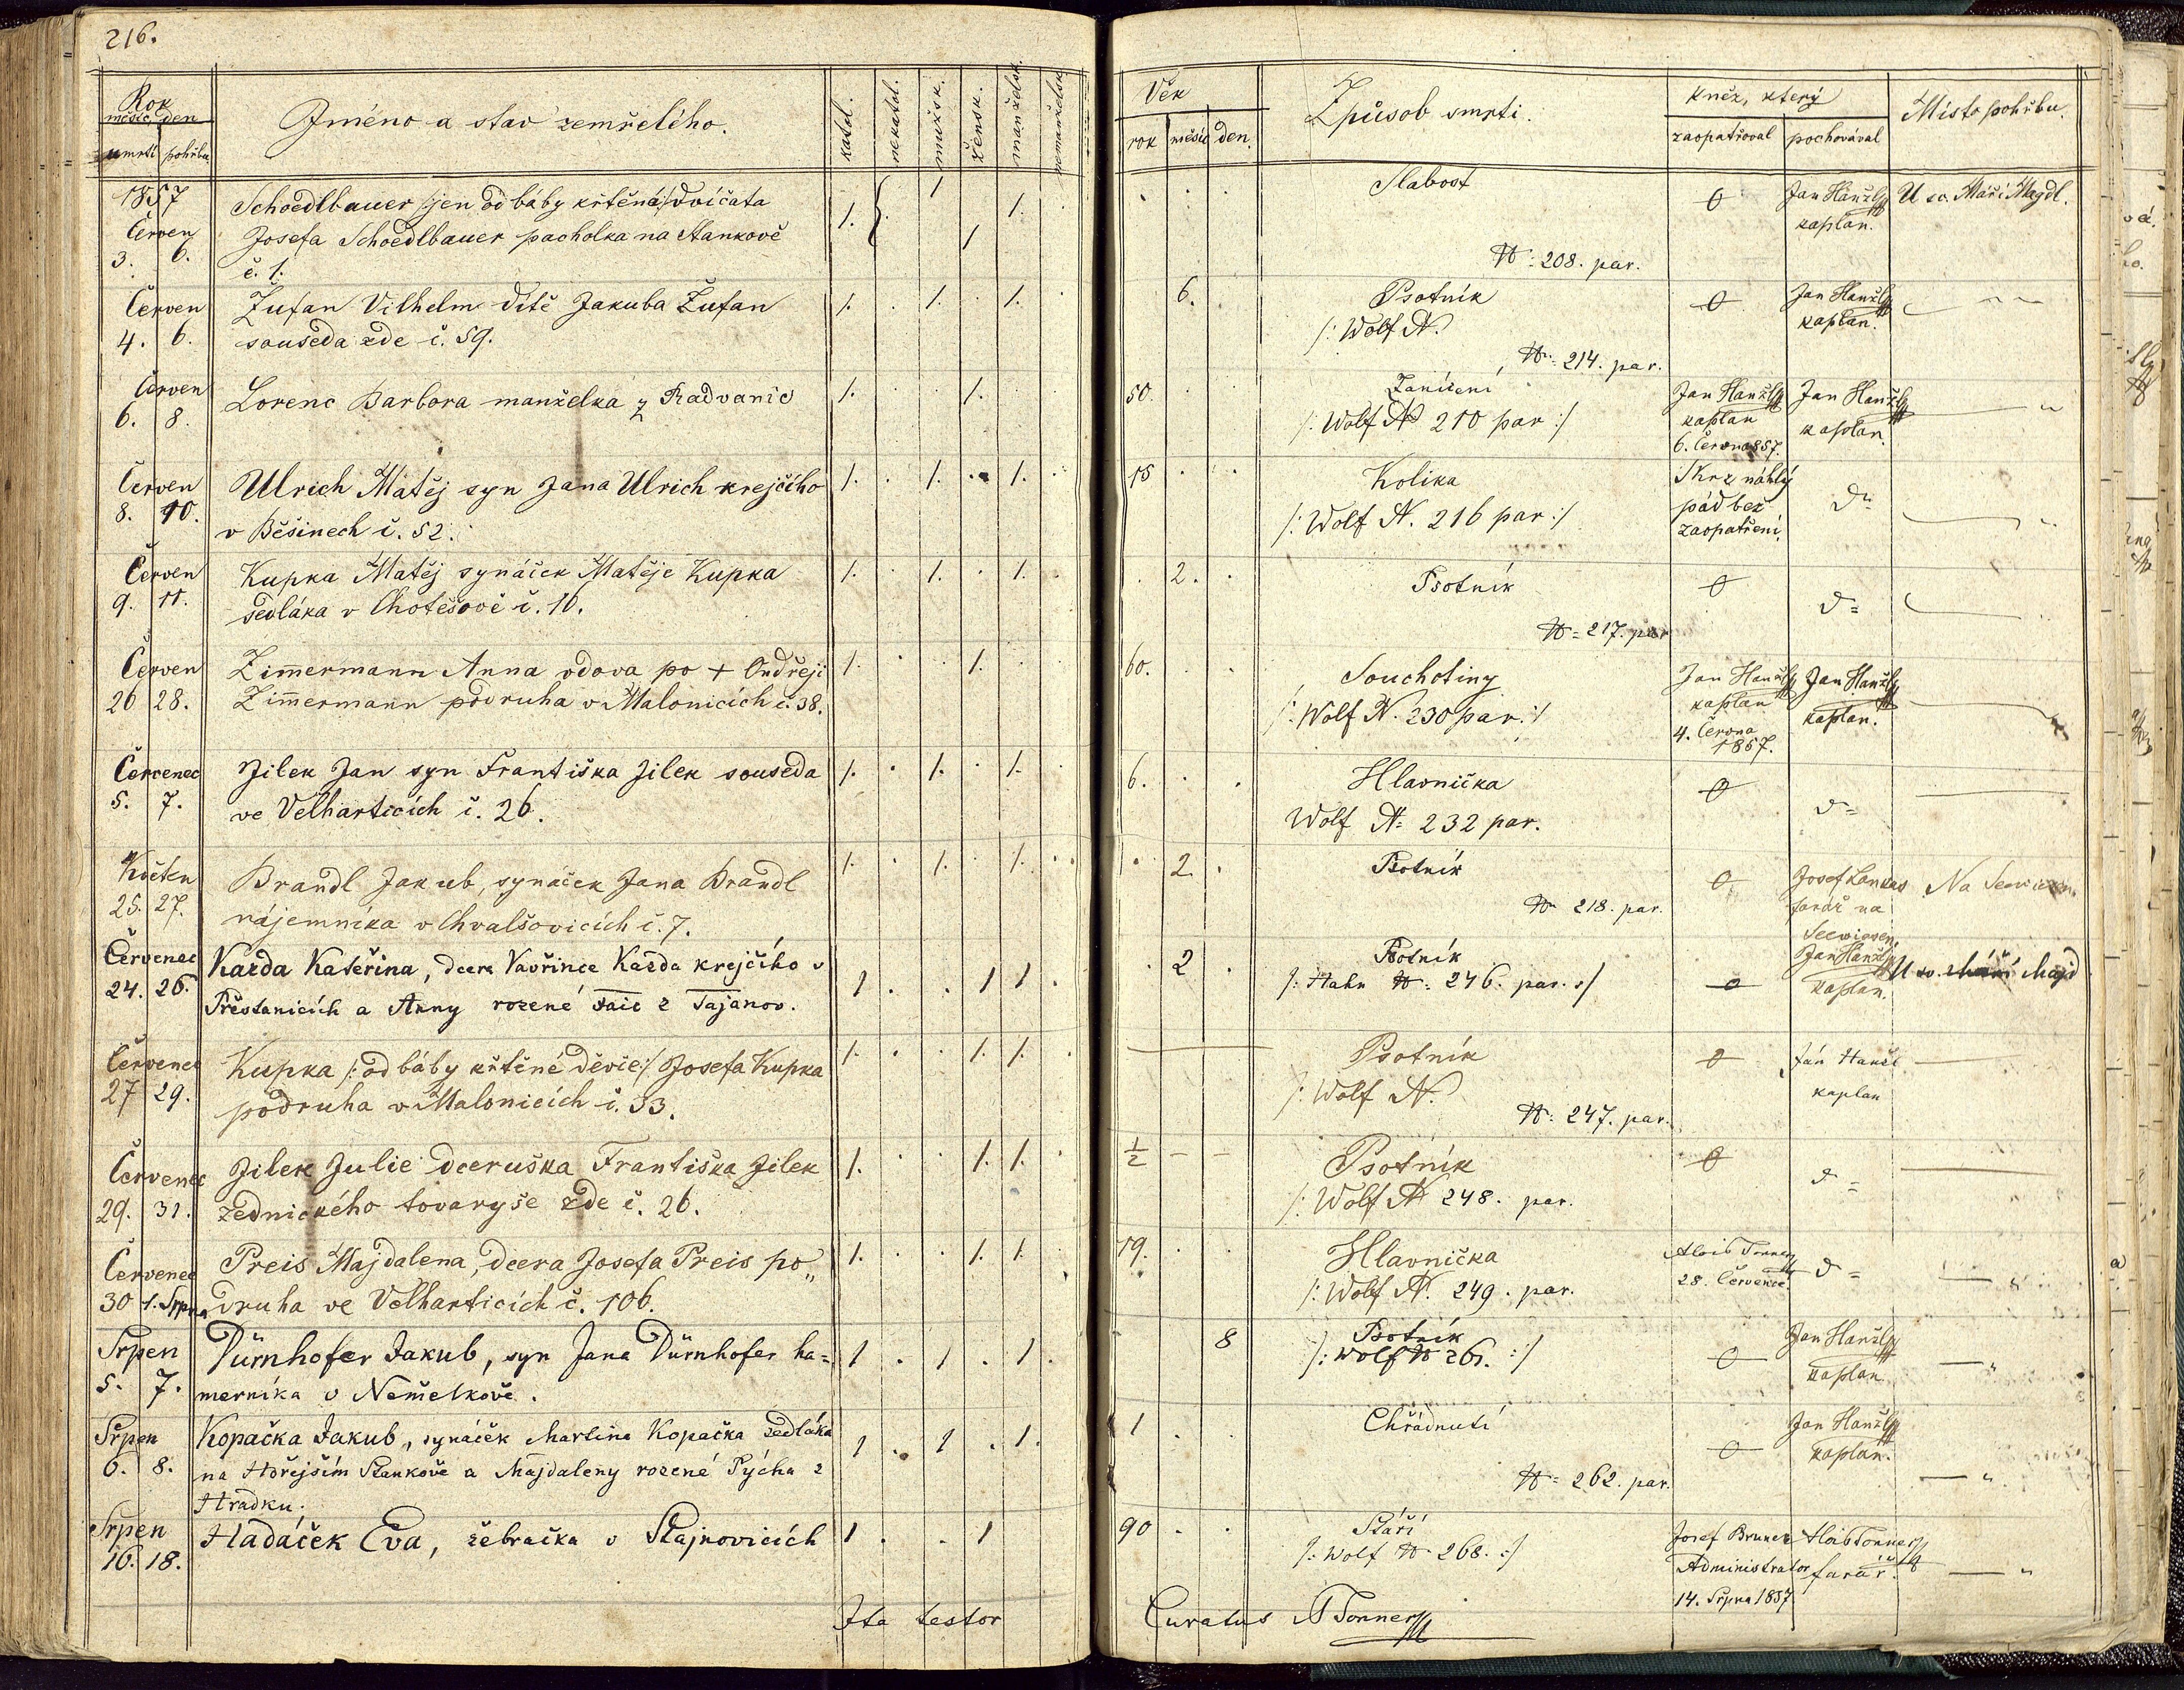 216.
Rok
měsíc, den
úmrtí pohřbu
Jméno a stav zemřelého.
katol.
nekatol.
mužsk.
žensk.
manželsk.
nemanželsk.
Věk
rok měsíc den.
Způsob smrti.
kněz, který
zaopatřoval pochovával
Místo pohřbu.
1857
Červen
3. 6.
Schoedlbauer /:jen od báby křtěná:/ dvíčata
Josefa Schoedlbauer pacholka na Stankově
č. 1.
1. 1 1. 1
Slabost
N: 208. par.
0
Jan Hanžl
kaplan.
U sv. Maří Magdl.
Červen
4. 6.
Žufan Vilhelm dítě Jakuba Žufan
souseda zde č. 59.
1. 1. 1.
6.
Psotník
/: Wolf N.
N: 214. par.
0
Jan Hanžl
kaplan.
Červen
6. 8.
Lorenc Barbora manželka z Radvanic
1. 1.
50.
Zanícení
/: Wolf N 210 par :/
Jan Hanžl
kaplan
6. Června 857.
Jan Hanžl
kaplan.
Červen
8. 10.
Ulrich Matěj syn Jana Ulrich krejčího
v Běšinech č. 52.
1. 1. 1.
15
Kolika
/: Wolf N. 216 par :/
Skrz náhlý
pád bez
zaopatření.
d=
Červen
9. 11.
Kupka Matěj synáček Matěje Kupka
sedláka v Chotěšově č. 16.
1. 1. 1.
2.
Psotník
N= 217. par
0
d=
Červen
26 28.
Zimermann Anna vdova po + Ondřeji
Zimermann podruha v Malonicích č. 38.
1. 1.
60.
Souchotiny
/: Wolf N. 230 par. :/
Jan Hanžl
kaplan
4. Června
1857.
Jan Hanžl
kaplan.
Červenec
5. 7.
Jilek Jan syn Františka Jilek souseda
ve Velharticích č. 26.
1. 1. 1.
6.
Hlavnička
Wolf N= 232 par.
0
d=
Květen
25. 27.
Brandl Jakub, synáček Jana Brandl
nájemníka v Chvalšovicích č. 7.
1. 1. 1.
2.
Psotník
N 218. par.
0
Josef Landes
farář na
Seewiesen.
Na
Červenec
24. 26.
Kazda Kateřina, dcera Vavřince Kazda krejčího v
Přestanicích a Anny rozené Faic z Tajanov.
1 1 1
2
Psotník
/: Hahn N: 246. par. :/
0
Jan Hanžl
kaplan.
U sv. Máří Majd
Červenec
27 29.
Kupka /: od báby křtěné děvče :/ Josefa Kupka
podruha v Malonicích č. 33.
1. 1. 1.
Psotník
/: Wolf N.
N: 247. par.
0
Ján Hanžl
kaplan
Červenec
29. 31.
Jilek Julie dceruška Františka Jilek
zednického tovaryše zde č. 26.
1. 1. 1.
1/2
Psotník
/: Wolf N 248. par.
0
d=
Červenec
30 1. Srpna
Preis Majdalena, dcera Josefa Preis po„
druha ve Velharticích č. 106.
1. 1. 1.
19.
Hlavnička
/: Wolf N. 249. par.
Alois Tonner
28. Července
d=
Srpen
5. 7.
Dürnhofer Jakub, syn Jana Dürnhofer ha=
merníka v Nemelkově.
1 1 1
8
Psotník
/: Wolf N 261. :/
0
Jan Hanžl
kaplan
Srpen
6. 8.
Kopačka Jakub, synáček Martina Kopačka sedláka
na Hořejším Stankově a Majdaleny rozené Pýcha z
Hradku.
1 1 1.
1
Chřadnutí
N= 262. par.
0
Jan Hanžl
kaplan.
Srpen
16. 18.
Hladáček Eva, žebračka v Stajnovicích
1 1
90
Stáří
/: Wolf N 268. :/
Josef Bruner
Administrator
14. Srpna 1857
Alois Tonner
farář.
Ita testor
Curatus A Tonner